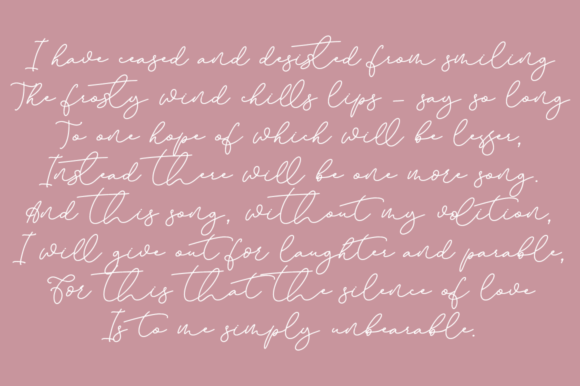 I have ceased and desisted from smiling
The frosty wind chills lips – say so long
To one hope of which will be lesser,
Instead there will be one more song.
And this song, without my volition,
I will give out for laughter and parable,
For this that the silence of love
Is to me simply unbearable.